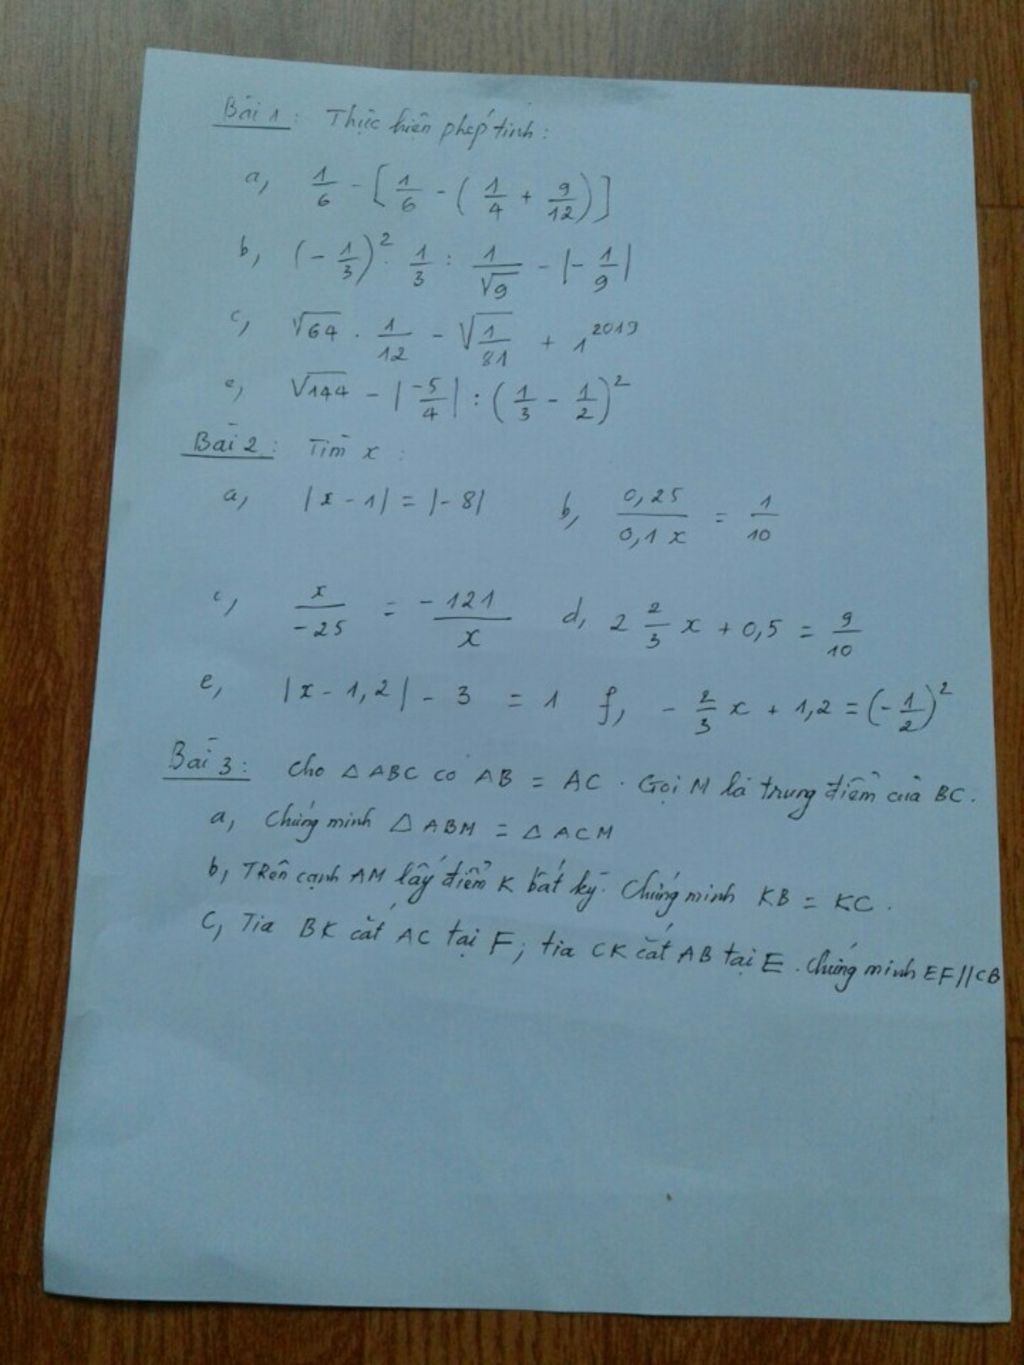 Bài 1: Thực hiện phép tính:
a, 1/6 - [1/6 - (1/4 + 9/12)]
b, (-1/3)² · 1/3 : 1/√9 - |-1/9|
c, √64 · 1/12 - √(1/81) + 1²⁰¹⁹
e, √144 - |-5/4| : (1/3 - 1/2)²
Bài 2: Tìm x:
a, |x - 1| = |-8| b, 0,25/0,1x = 1/10
c, x/-25 = -121/x d, 2 2/3 x + 0,5 = 9/10
e, |x - 1,2| - 3 = 1 f, -2/3 x + 1,2 = (-1/2)²
Bài 3: Cho △ABC có AB = AC. Gọi M là trung điểm của BC.
a, Chứng minh △ABM = △ACM
b, Trên cạnh AM lấy điểm K bất kỳ. Chứng minh KB = KC.
C, Tia BK cắt AC tại F; tia CK cắt AB tại E. Chứng minh EF//CB